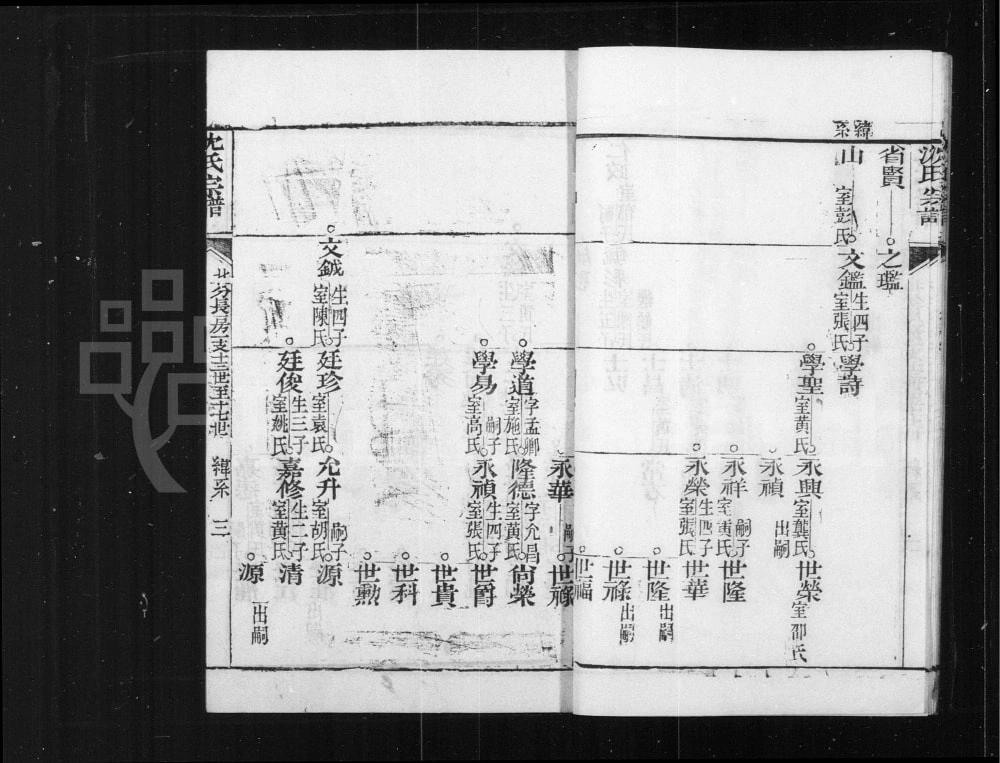 沈氏宗譜
省賢 之瓛
緯系
山 室彭氏 文鑑 生四子 室張氏 學詩
學聖 室黃氏 永興 室龔氏 世榮 室邵氏
永禎 出嗣
永祥 嗣子 室黃氏 世隆
永榮 生四子 室張氏 世華
世隆 出嗣
世祿 出嗣
世福
永華 嗣子 世祿
學道 字孟卿 室施氏 隆德 字允昌 室黃氏 尙榮
學易 嗣子 室高氏 永禎 生四子 室張氏 世爵
世貴
世科
世勲
文鉞 生四子 室陳氏 廷珍 室袁氏 允升 嗣子 室胡氏 源
廷俊 生三子 室姚氏 嘉修 生二子 室黃氏 清
源 出嗣
沈氏宗譜
長房一支十三世至十七世 緯系 三